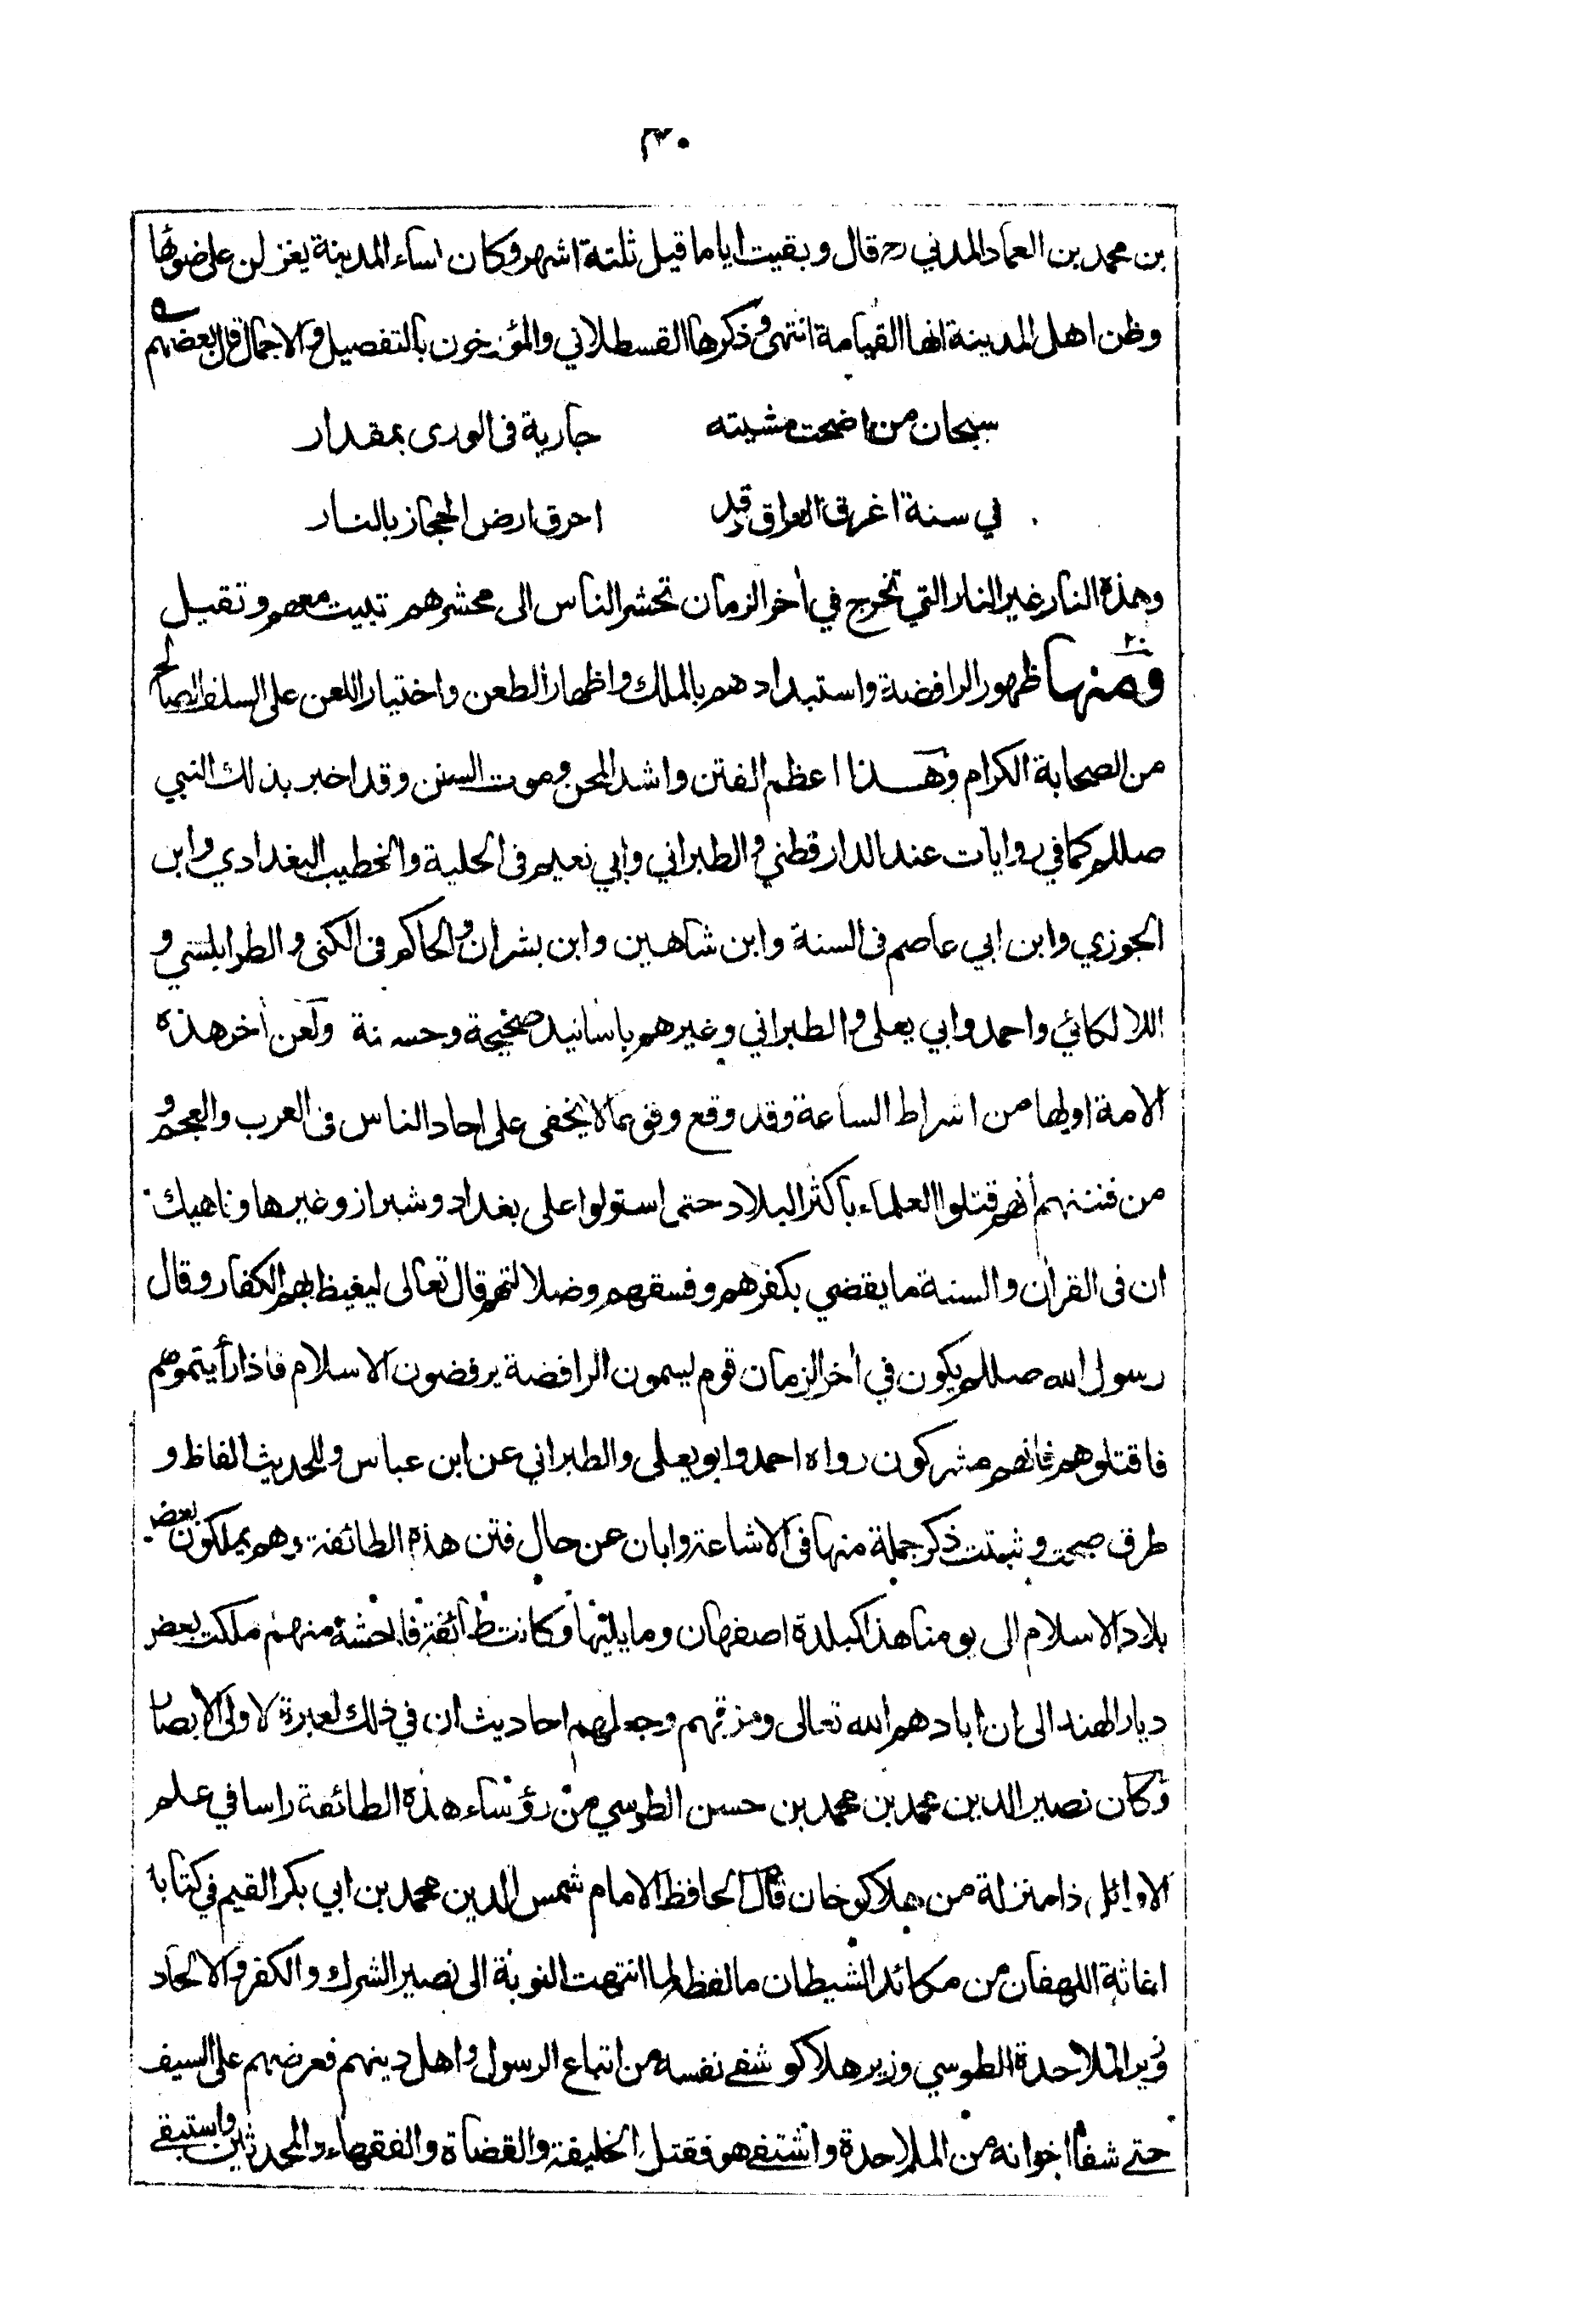 ٣٠
بن محمد بن العماد المدني رح قال وبقيت اياما قيل ثلثة اشهر وكان نساء المدينة يغزلن على ضوئها
وظن اهل المدينة انها القيامة انتهى وذكرها القسطلاني والمؤرخون بالتفصيل والاجمال قال بعضهم
سبحان من اضحت مشيته جارية فى الورى بمقدار
في سنة اغرق العراق وقد احرق ارض الحجاز بالنار
وهذه النار غير النار التي تخرج في أخر الزمان تحشر الناس الى محشرهم تبيت معهم وتقيل
ومنها ظهور الرافضة واستبدادهم بالملك واظهار الطعن واختيار اللعن على السلف الصالح
من الصحابة الكرام وهذا اعظم الفتن واشد المحن وموت السنن وقد اخبر بذلك النبي
صللم كما في روايات عند الدارقطني والطبراني وابي نعيم فى الحلية والخطيب البغدادي وابن
الجوزي وابن ابي عاصم فى السنة وابن شاهين وابن بشران والحاكم فى الكنى والطرابلسي و
اللالكائي واحمد وابي يعلى والطبراني وغيرهم باسانيد صحيحة وحسنة ولعن أخر هذه
الامة اولها من اشراط الساعة وقد وقع وقوعا لا يخفى على احاد الناس فى العرب والعجم و
من فتنهم أنهم قتلوا العلماء باكثر البلاد حتى استولوا على بغداد وشيراز وغيرها وناهيك
ان فى القرأن والسنة ما يقضي بكفرهم وفسقهم وضلالتهم قال تعالى ليغيظ بهم الكفار وقال
رسول الله صللم يكون في أخر الزمان قوم يسمون الرافضة يرفضون الاسلام فاذا رأيتموهم
فاقتلوهم فانهم مشركون رواه احمد وابو يعلى والطبراني عن ابن عباس وللحديث الفاظ و
طرق صحت وثبتت ذكر جملة منها فى الاشاعة وابان عن حال فتن هذه الطائفة وهم يملكون بعض
بلاد الاسلام الى يومنا هذا كبلدة اصفهان وما يليها وكانت طائفة فاحشة منهم ملكت بعض
ديار الهند الى ان ابادهم الله تعالى ومزقهم وجعلهم احاديث ان في ذلك لعبرة لاولى الابصار
وكان نصير الدين محمد بن محمد بن حسن الطوسي من رؤساء هذه الطائفة راسا في علم
الاوائل ذا منزلة من هلاكو خان قال الحافظ الامام شمس الدين محمد بن ابي بكر القيم في كتابه
اغاثة اللهفان من مكائد الشيطان ما لفظه لما انتهت النوبة الى نصير الشرك والكفر والالحاد
وزير الملاحدة الطوسي وزير هلاكو شفى نفسه من اتباع الرسول واهل دينهم فعرضهم على السيف
حتى شفا اخوانه من الملاحدة واشتفى هو فقتل الخليفة والقضاة والفقهاء والمحدثين واستبقى